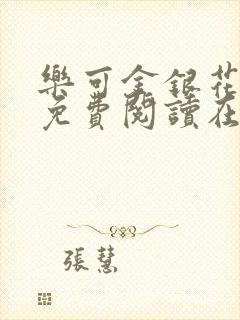 樂可金銀花
免費閱讀在
張慧